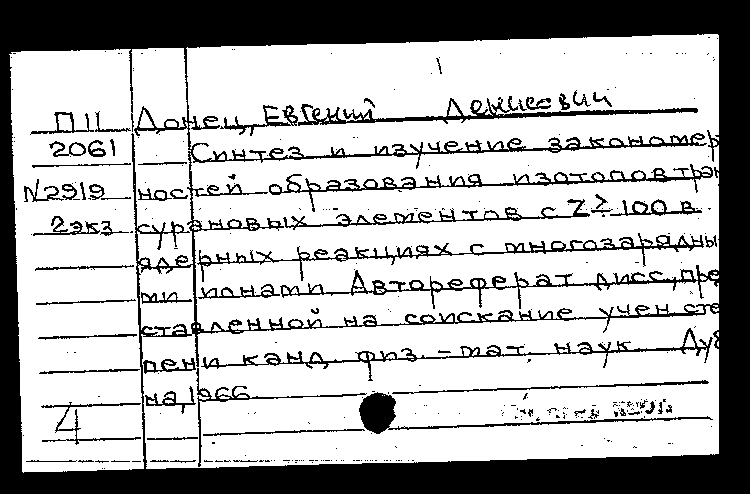 П11 Донец, Евгений Денисович
2061 Синтез и изучение закономер
N2919 ностей образования изотопов тран
2экз сурановых элементов с Z≥100 в
ядерных реакциях с многозарядны
ми ионами Автореферат дисс., пре
ставленной на соискание учен сте
пени канд физ.-мат. наук Дуб
на, 1966
4